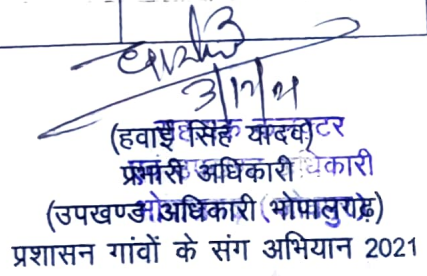 3/12/21
(हवाई सिंह यादव)
प्रभारी अधिकारी
(उपखण्ड अधिकारी भोपालगढ़)
प्रशासन गांवों के संग अभियान 2021